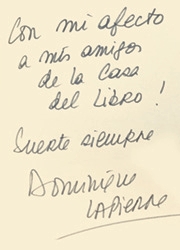 Con mi afecto
a mis amigos
de la Casa
del Libro!
Suerte siempre
Dominique
LAPIERRE